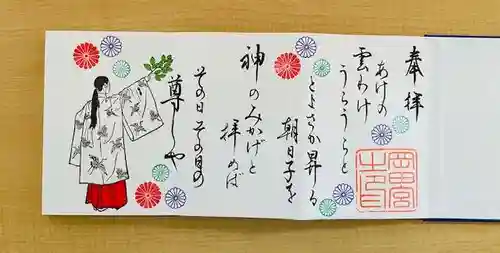 奉拝
あけの
雲わけ
うらうらと
とよさか昇る
朝日子を
神のみかげと
拝めば
その日その日の
尊しや
岡田宮